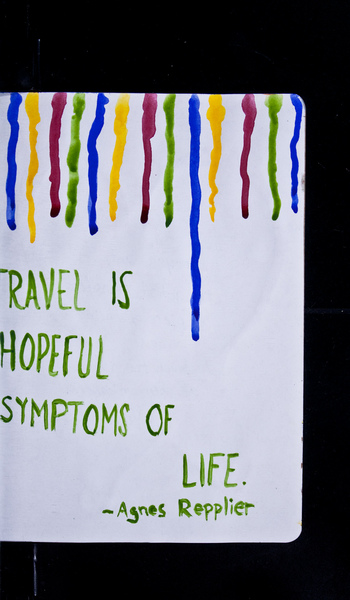 TRAVEL IS
HOPEFUL
SYMPTOMS OF
LIFE.
~Agnes Repplier